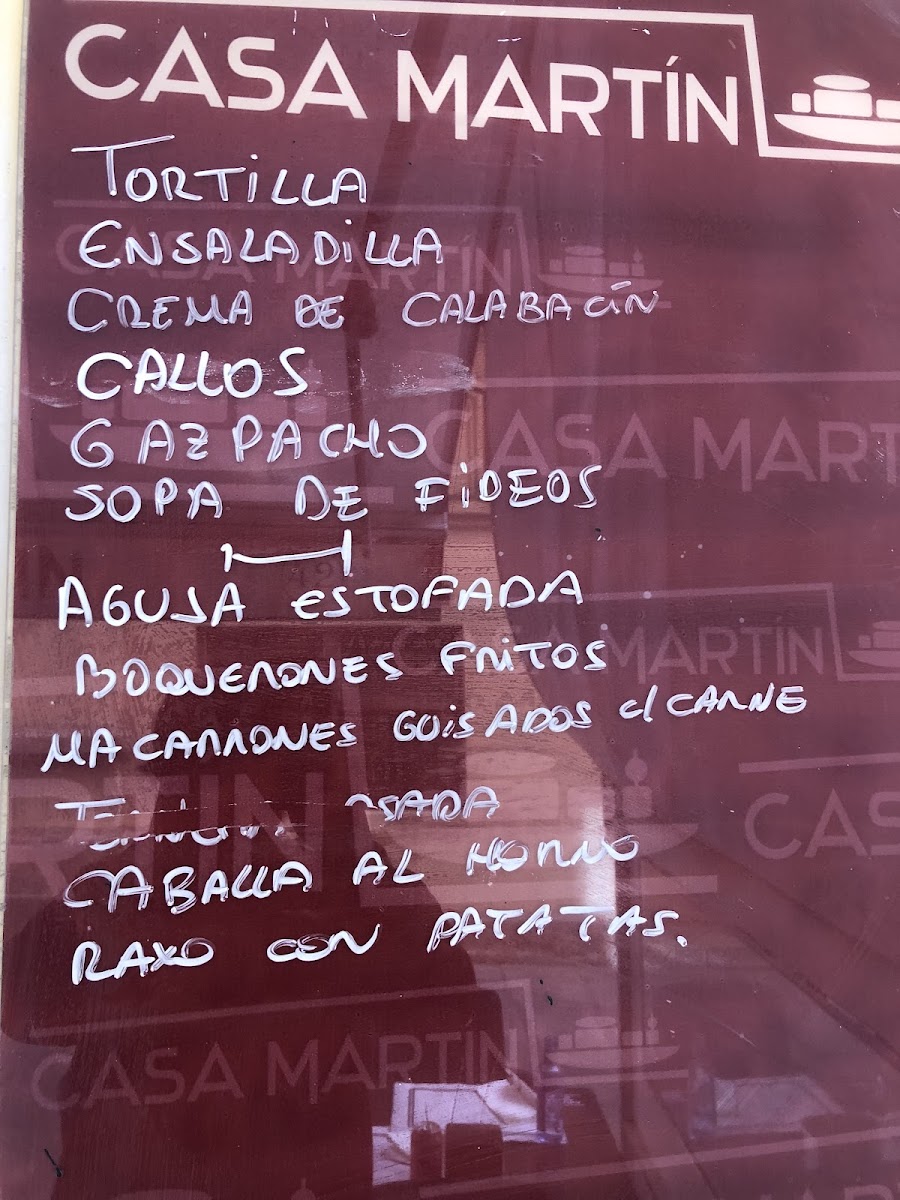 CASA MARTÍN
TORTILLA
ENSALADILLA
CREMA DE CALABACÍN
CALLOS
GAZPACHO
SOPA DE FIDEOS
AGUJA ESTOFADA
BOQUERONES FRITOS
MACARRONES GUISADOS c/ CARNE
CABALLA AL HORNO
RAXO CON PATATAS.
CASA MARTÍN
CASA MART
CASA MARTÍN
RTÍN
CAS
CASA MARTÍN